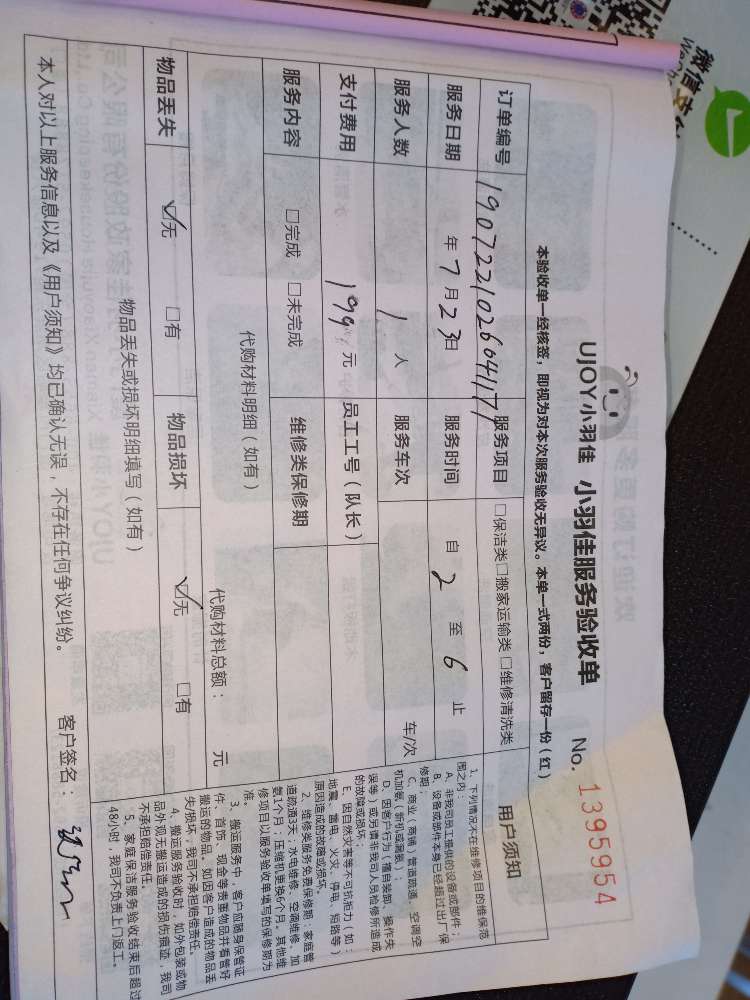 微信支付
UJOY小羽佳 小羽佳服务验收单
No. 1395954
本验收单一经核签，即视为对本次服务验收无异议。本单一式两份，客户留存一份（红）
订单编号 190722102604117 服务项目 □保洁类□搬家运输类 □维修清洗类
服务日期 年 7 月 23 日 服务时间 自 2 至 6 止
服务人数 1 人 服务车次 车/次
支付费用 199 元 员工工号（队长）
服务内容 □完成 □未完成 维修类保修期
代购材料明细（如有）
代购材料总额： 元
物品丢失 ☑无 □有 物品损坏 ☑无 □有
物品丢失或损坏明细填写（如有）
本人对以上服务信息以及《用户须知》均已确认无误，不存在任何争议纠纷。 客户签名：
用户须知
1、下列情况不在维修项目的维保范
围之内：
A、非我司员工提供的设备或部件；
B、设备或部件本身已经超过出厂保
修期；
C、商业（商铺）管道疏通、空调空
机加氨（新机或漏氨）；
D、因客户行为（擅自装卸、操作失
误等）或另请非我司人员检修所造成
的故障或损坏；
E、因自然灾害等不可抗拒力（如：
地震、雷电、火灾、停电、短路等）
原因造成的故障或损坏。
2、维修类服务免费保修期：家庭管
道疏通3天；水电维修、空调维修、加
氨1个月；压缩机更换6个月。其他维
修项目以服务验收单填写的保修期为
准。
3、搬运服务中，客户应随身保管证
件、首饰、现金等贵重物品并看管好
搬运的物品。如因客户造成的物品丢
失损坏，我司不承担赔偿责任。
4、搬运服务验收时，如外包装或物
品外观无搬运造成的损伤痕迹，我司
不承担赔偿责任。
5、家庭保洁服务验收结束后超过
48小时，我司不负责上门返工。